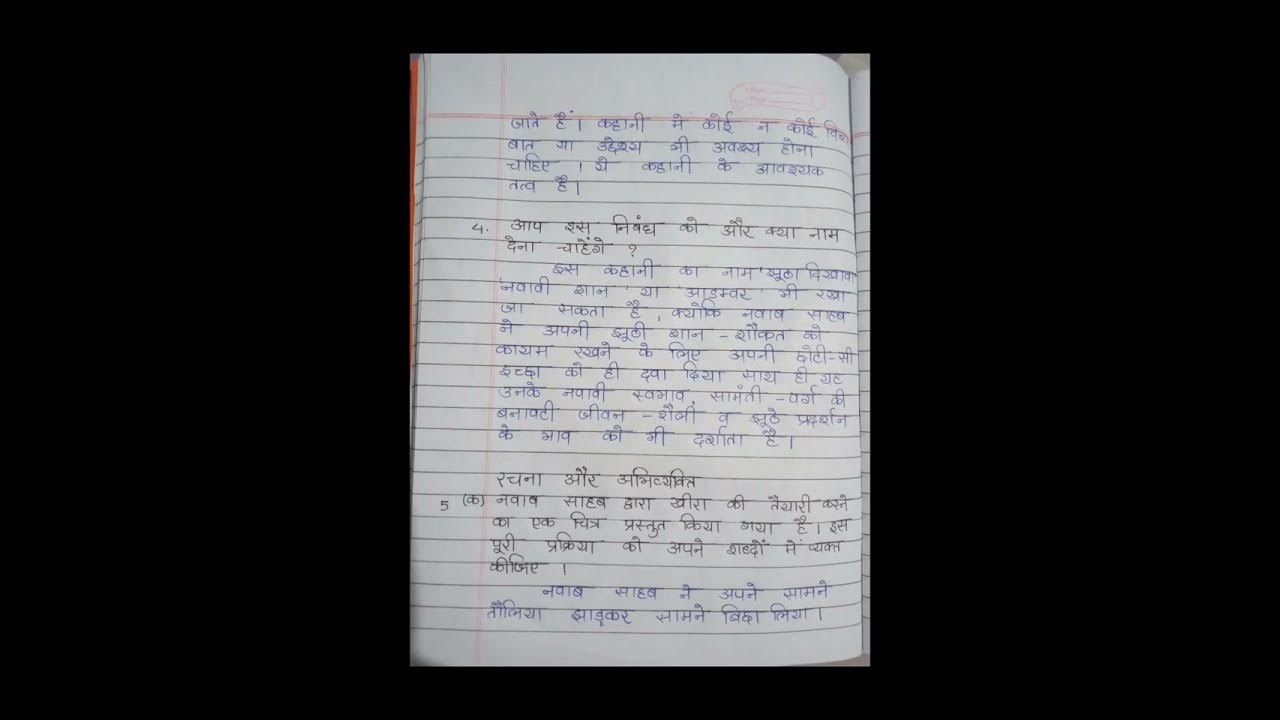 जाते हैं। कहानी में कोई न कोई
बात या उद्देश्य भी अवश्य होना
चाहिए । ये कहानी के आवश्यक
तत्व है।
4. आप इस निबंध को और क्या नाम
देना चाहेंगे ?
इस कहानी का नाम 'झूठा दिखावा
'नवाबी शान' या 'आडम्बर' भी रखा
जा सकता है, क्योंकि नवाब साहब
ने अपनी झूठी शान - शौकत को
कायम रखने के लिए अपनी छोटी-सी
इच्छा को ही दबा दिया साथ ही यह
उनके नवाबी स्वभाव, सामंती - वर्ग की
बनावटी जीवन - शैली व झूठे प्रदर्शन
के भाव को भी दर्शाता है।
रचना और अभिव्यक्ति
5 (क) नवाब साहब द्वारा खीरा की तैयारी करने
का एक चित्र प्रस्तुत किया गया है। इस
पूरी प्रक्रिया को अपने शब्दों में व्यक्त
कीजिए ।
नवाब साहब ने अपने सामने
तौलिया झाड़कर सामने बिछा लिया।